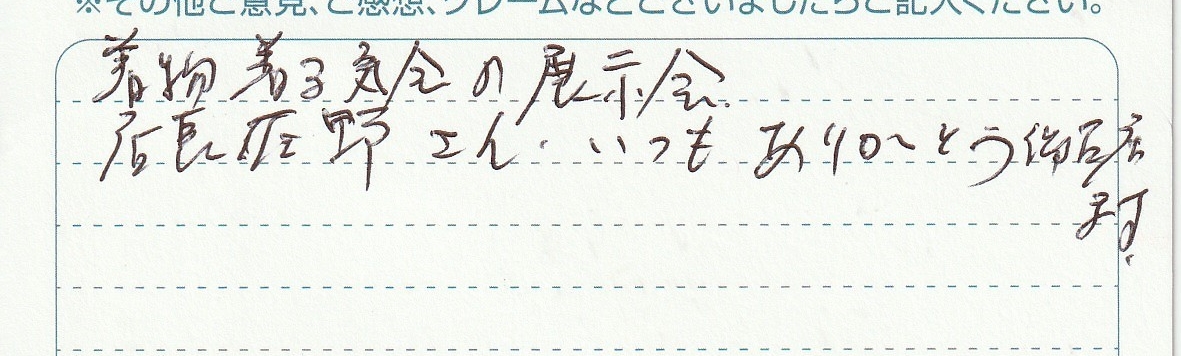 ※その他ご意見、ご感想、クレームなどございましたらご記入ください。
着物着る気会の展示会.
店長庄野さん.いつもありがとう御座居
ます.